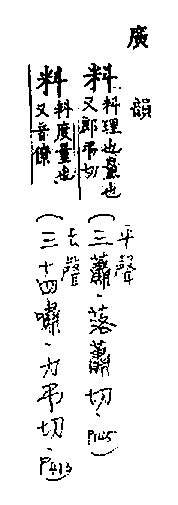 廣韻
料 料理也量也又郎弔切
(三蕭·落蕭切、P145)
平聲
料 料度量也又音僚
(三十四嘯·力弔切、P413)
去聲